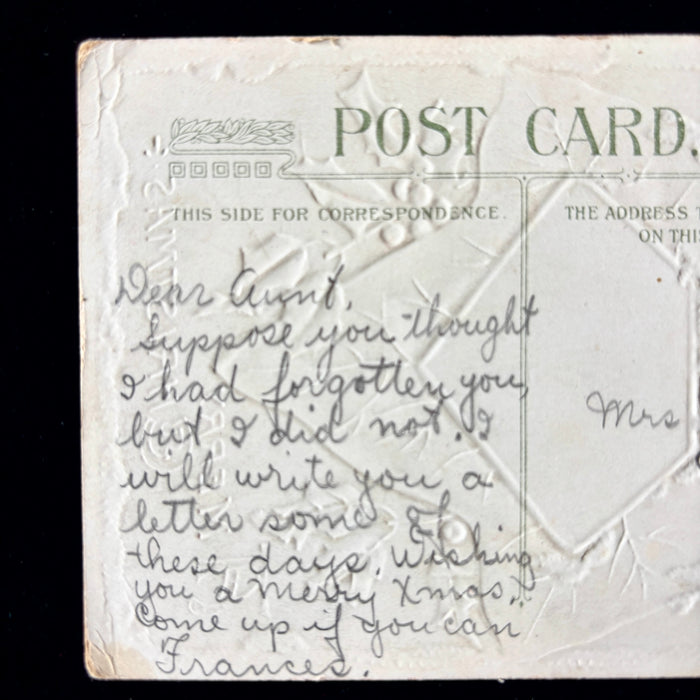 POST CARD.
THIS SIDE FOR CORRESPONDENCE.
THE ADDRESS
ON THIS
Dear Aunt,
Suppose you thought
I had forgotten you,
but I did not. I
will write you a
letter some of
these days. Wishing
you a Merry Xmas.
Come up if you can
Frances.
Mrs